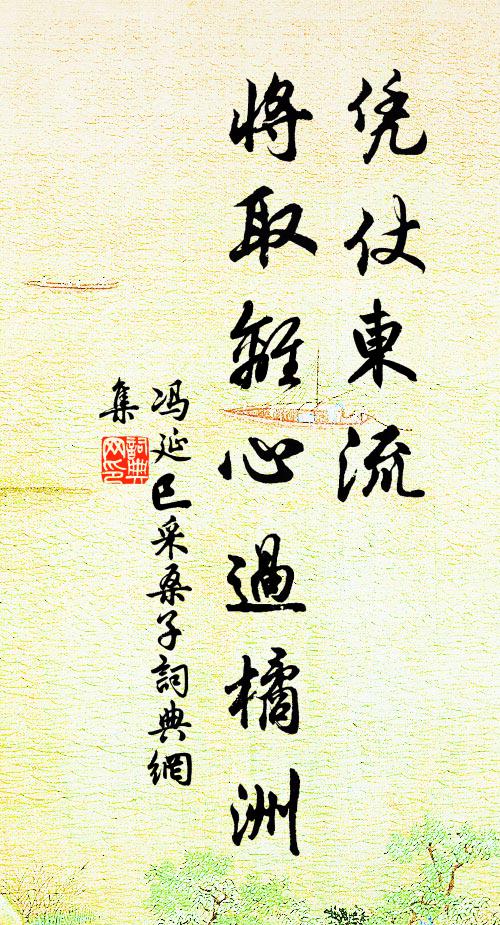 凭仗東流
將取離心過橘洲
冯延巳采桑子詞典網
集
詞典网印